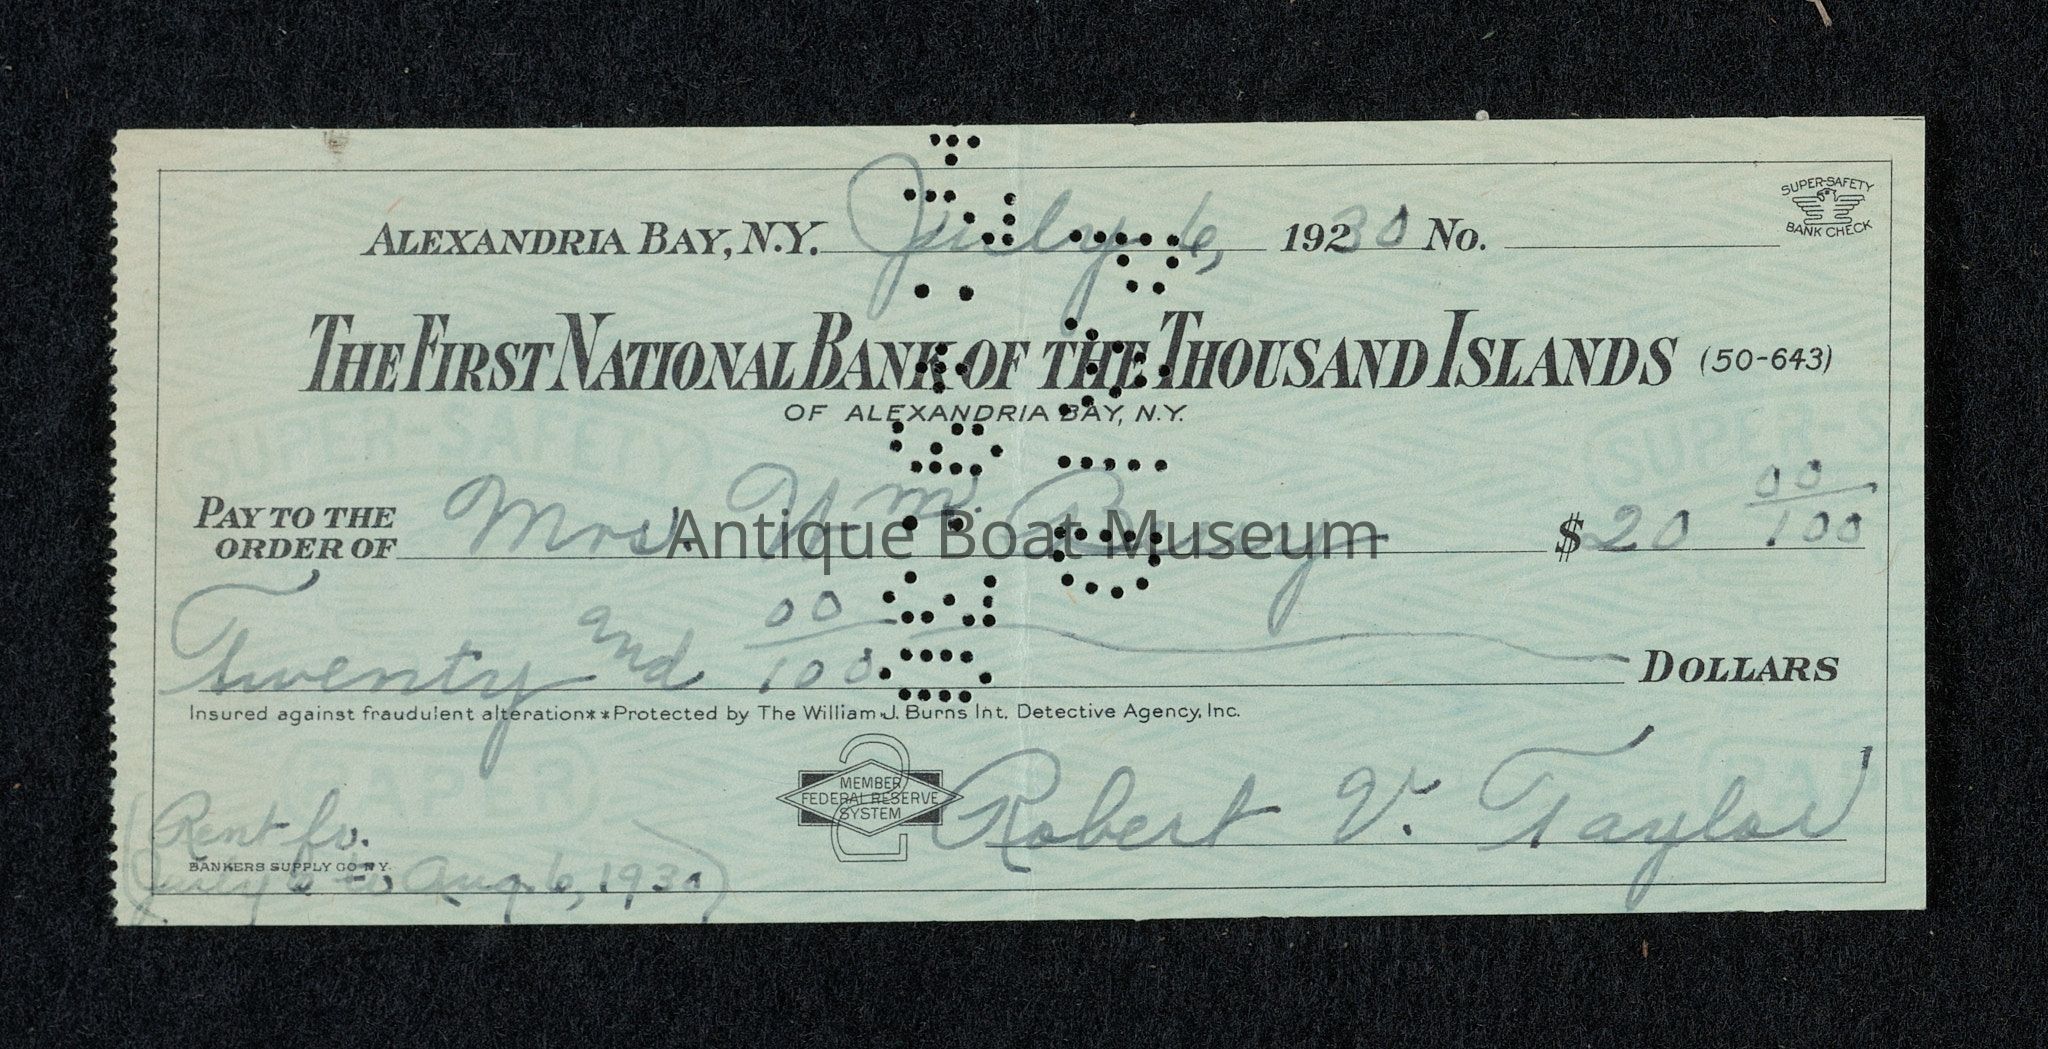 SUPER-SAFETY
BANK CHECK
ALEXANDRIA BAY, N.Y. July 6, 19230 No.
THE FIRST NATIONAL BANK OF THE THOUSAND ISLANDS (50-643)
OF ALEXANDRIA BAY, N.Y.
SUPER-SAFETY
PAY TO THE
ORDER OF Mrs. Wm. $20 00/100
Antique Boat Museum
Twenty and 00/100 DOLLARS
Insured against fraudulent alteration**Protected by The William J. Burns Int. Detective Agency, Inc.
PAPER
MEMBER
FEDERAL RESERVE
SYSTEM
Robert V. Taylor
(Rent fr.
BANKERS SUPPLY CO N.Y.
July 6 to Aug. 6, 1930)